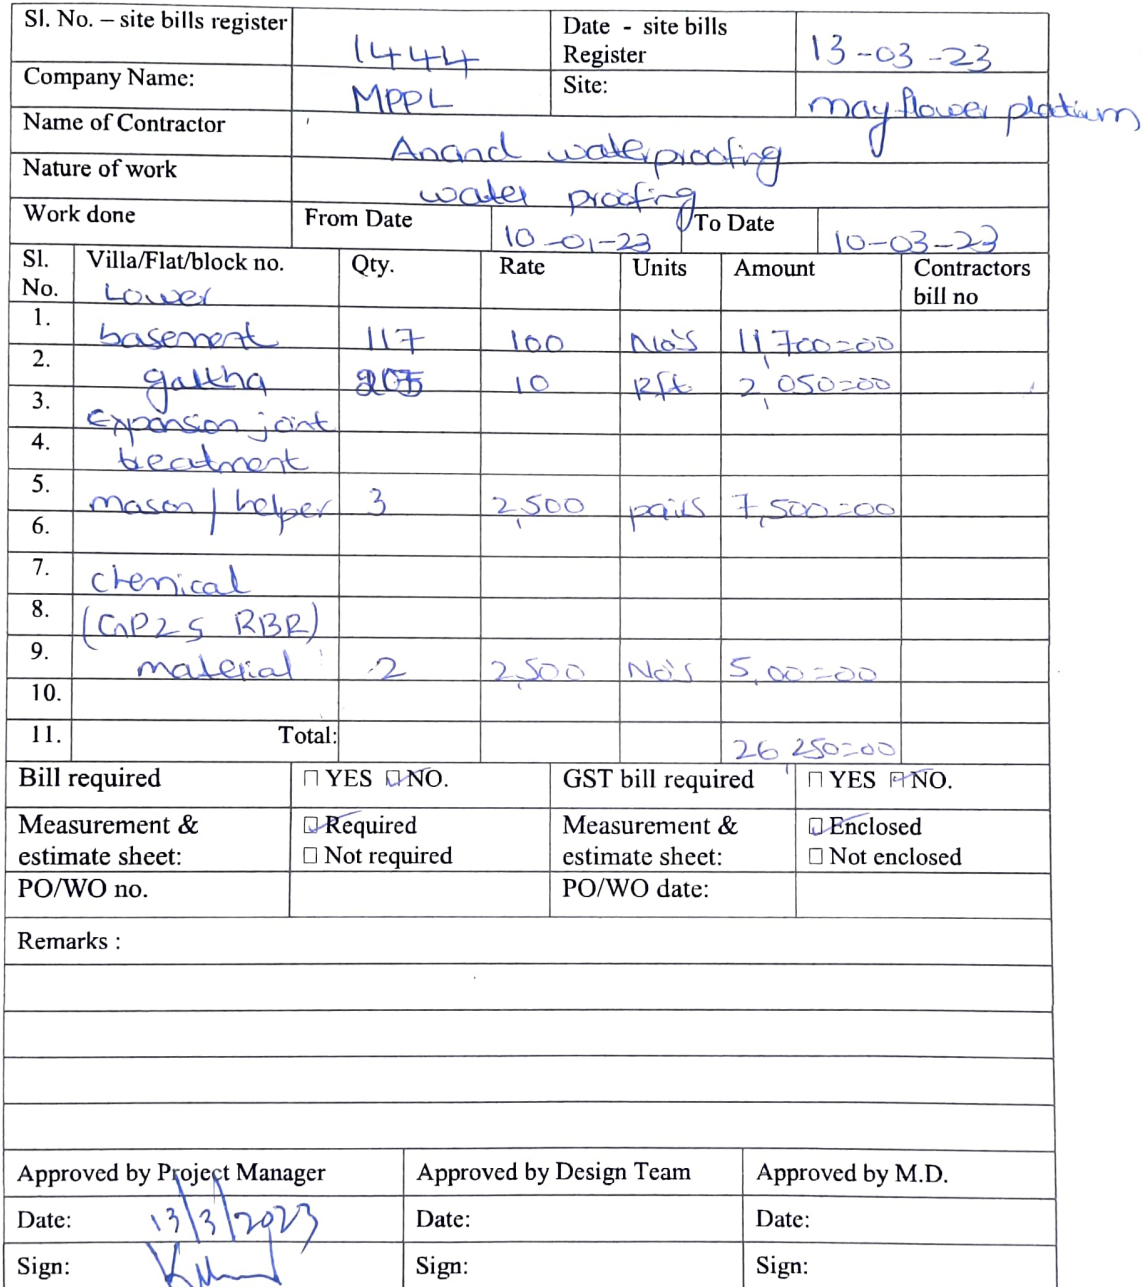 Sl. No. – site bills register 1444 Date - site bills Register 13-03-23
Company Name: MPPL Site: may flower platium
Name of Contractor Anand waterproofing
Nature of work water proofing
Work done From Date 10-01-23 To Date 10-03-23
Sl. No. Villa/Flat/block no. Qty. Rate Units Amount Contractors bill no
Lower
1. basement 117 100 No's 11,700=00
2. galtha 205 10 Rft 2,050=00
3. expansion joint
4. treatment
5. mason / helper 3 2,500 pairs 7,500=00
6.
7. chemical
8. (GP25 RBR)
9. material 2 2,500 No's 5,00=00
10.
11. Total: 26,250=00
Bill required YES NO. GST bill required YES NO.
Measurement & estimate sheet: Required Measurement & estimate sheet: Enclosed
Not required Not enclosed
PO/WO no. PO/WO date:
Remarks :
Approved by Project Manager Approved by Design Team Approved by M.D.
Date: 13/3/2023 Date: Date:
Sign: Sign: Sign: